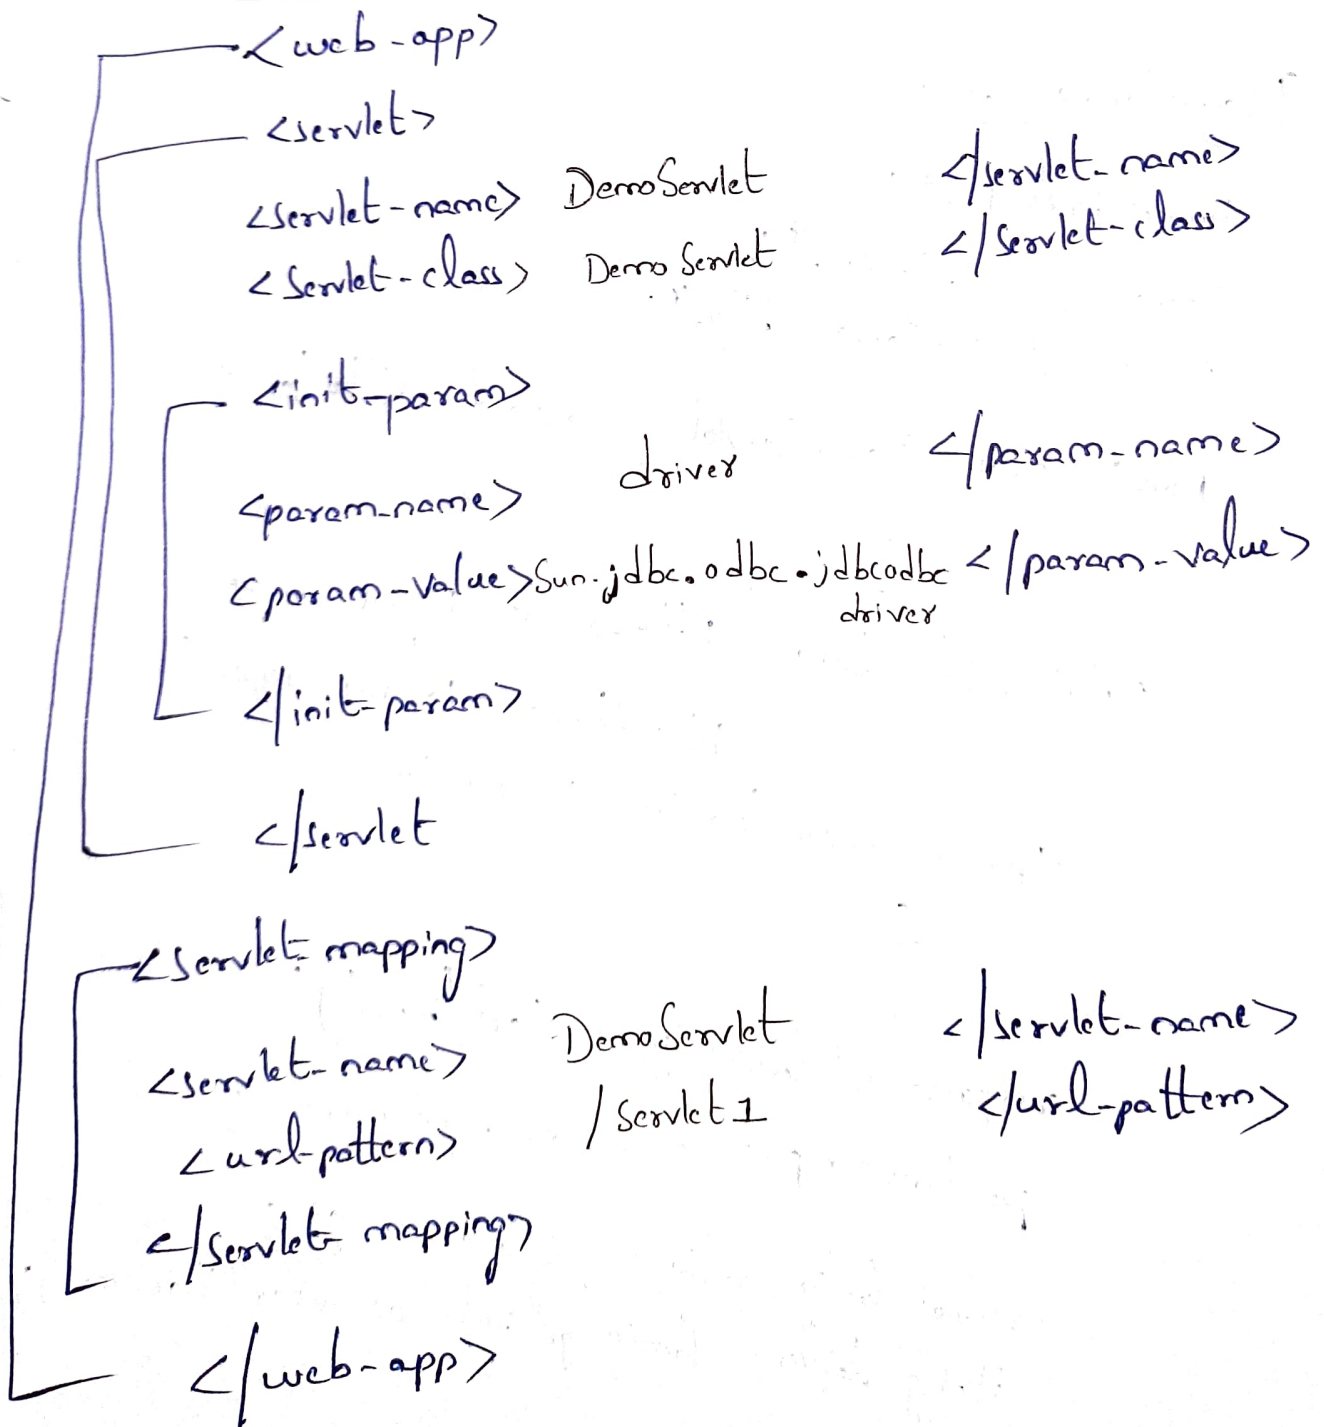 <web-app>
<servlet>
<servlet-name> DemoServlet </servlet-name>
<Servlet-class> Demo Servlet </Servlet-class>
<init-param>
<param-name> driver </param-name>
<param-value> Sun.jdbc.odbc.jdbcodbc </param-value>
driver
</init-param>
</servlet
<Servlet-mapping>
<servlet-name> DemoServlet </servlet-name>
<url-pattern> /Servlet1 </url-pattern>
</Servlet-mapping>
</web-app>